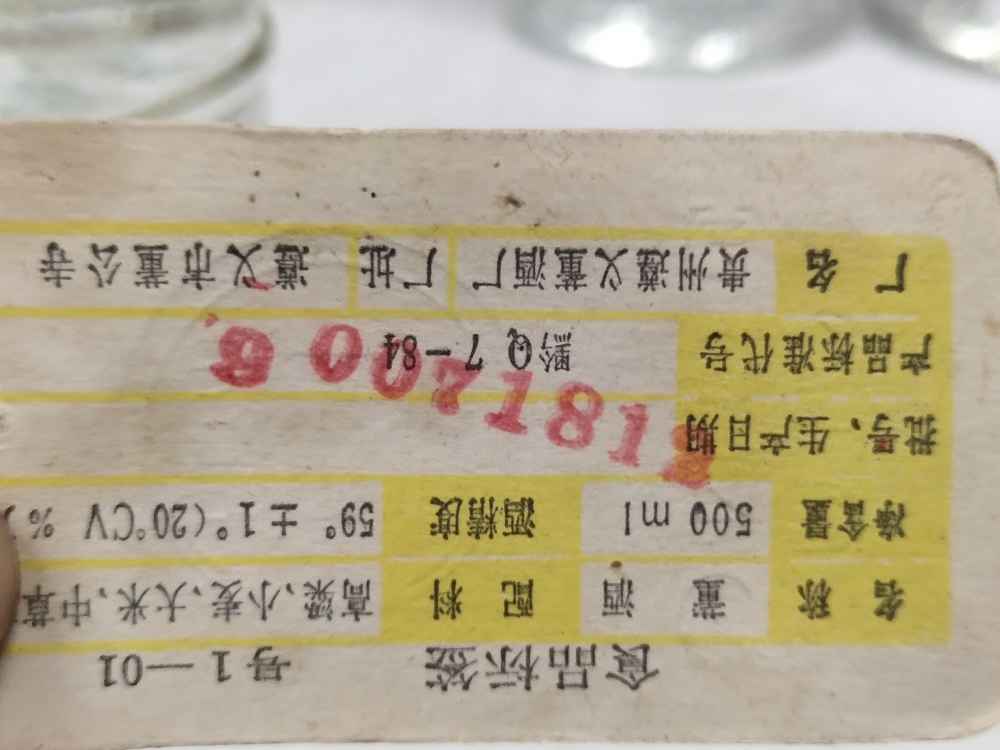 食品标签 号1—01
名称 董酒 配料 高粱、小麦、大米、中草
净含量 500 ml 酒精度 59°±1°(20°CV %
批号、生产日期
产品标准代号 黔Q 7-84
厂名 贵州遵义董酒厂 厂址 遵义市董公寺